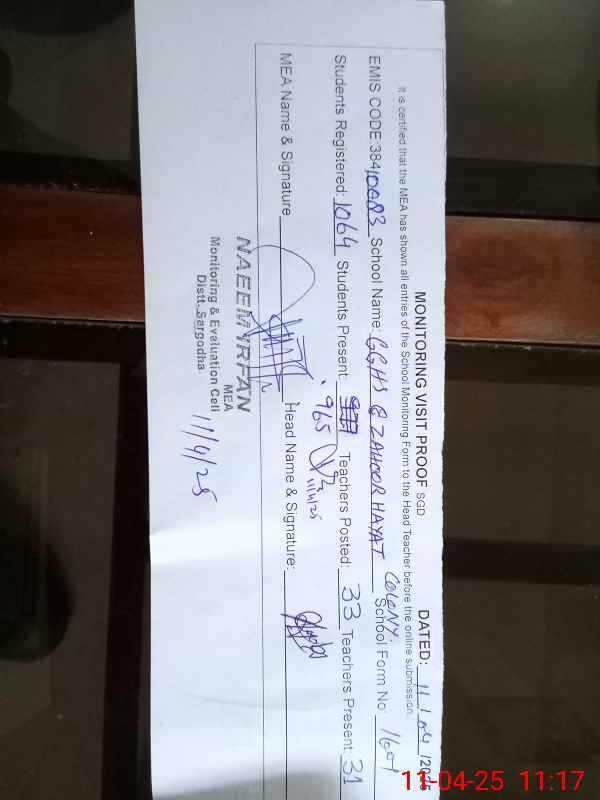 MONITORING VISIT PROOF SGD DATED: 11/04/2025
It is certified that the MEA has shown all entries of the School Monitoring Form to the Head Teacher before the online submission.
EMIS CODE 38410083 School Name: GGHS Q ZAHOOR HAYAT COLONY. School Form No: 1601
Students Registered: 1064 Students Present: 977 Teachers Posted: 33 Teachers Present: 31
965
11/4/25
MEA Name & Signature Head Name & Signature:
NAEEM IRFAN
MEA
Monitoring & Evaluation Cell
Distt. Sargodha.
11/4/25
11-04-25 11:17